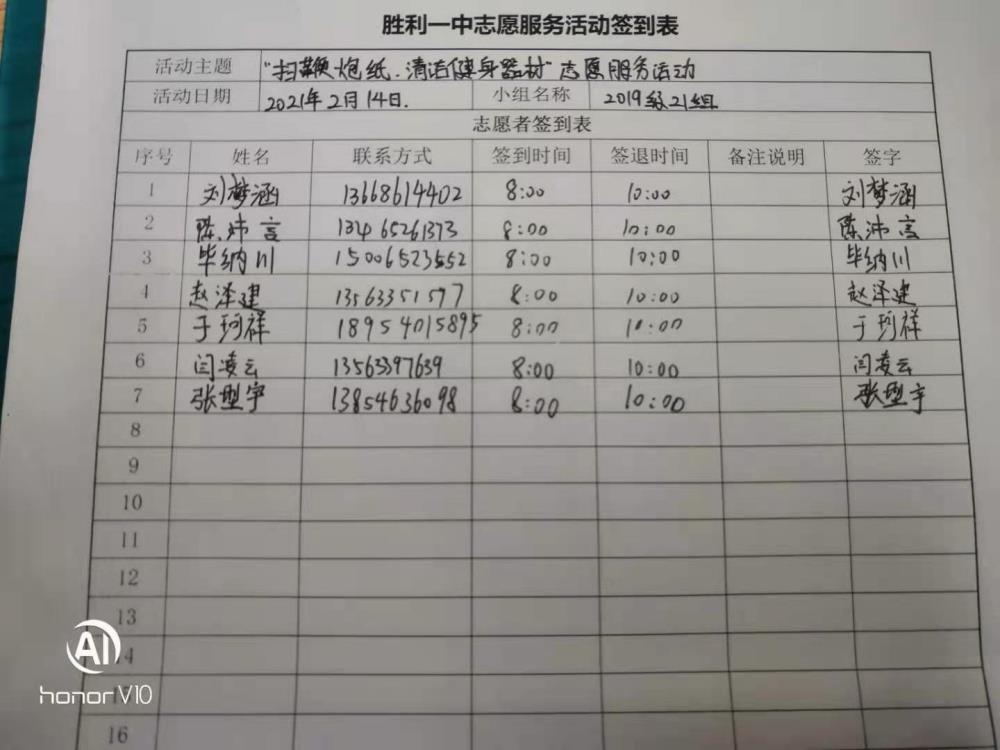 胜利一中志愿服务活动签到表
活动主题 "扫鞭炮纸.清洁健身器材"志愿服务活动
活动日期 2021年2月14日. 小组名称 2019级21组
志愿者签到表
序号 姓名 联系方式 签到时间 签退时间 备注说明 签字
1 刘梦涵 13668614402 8:00 10:00 刘梦涵
2 陈沛言 13465261373 8:00 10:00 陈沛言
3 毕纳川 15006523552 8:00 10:00 毕纳川
4 赵泽建 13563351577 8:00 10:00 赵泽建
5 于珂祥 18954015895 8:00 10:00 于珂祥
6 闫凌云 13563397639 8:00 10:00 闫凌云
7 张塱宇 13854636098 8:00 10:00 张塱宇
8
9
10
11
12
13
14
15
16
AI
honor V10